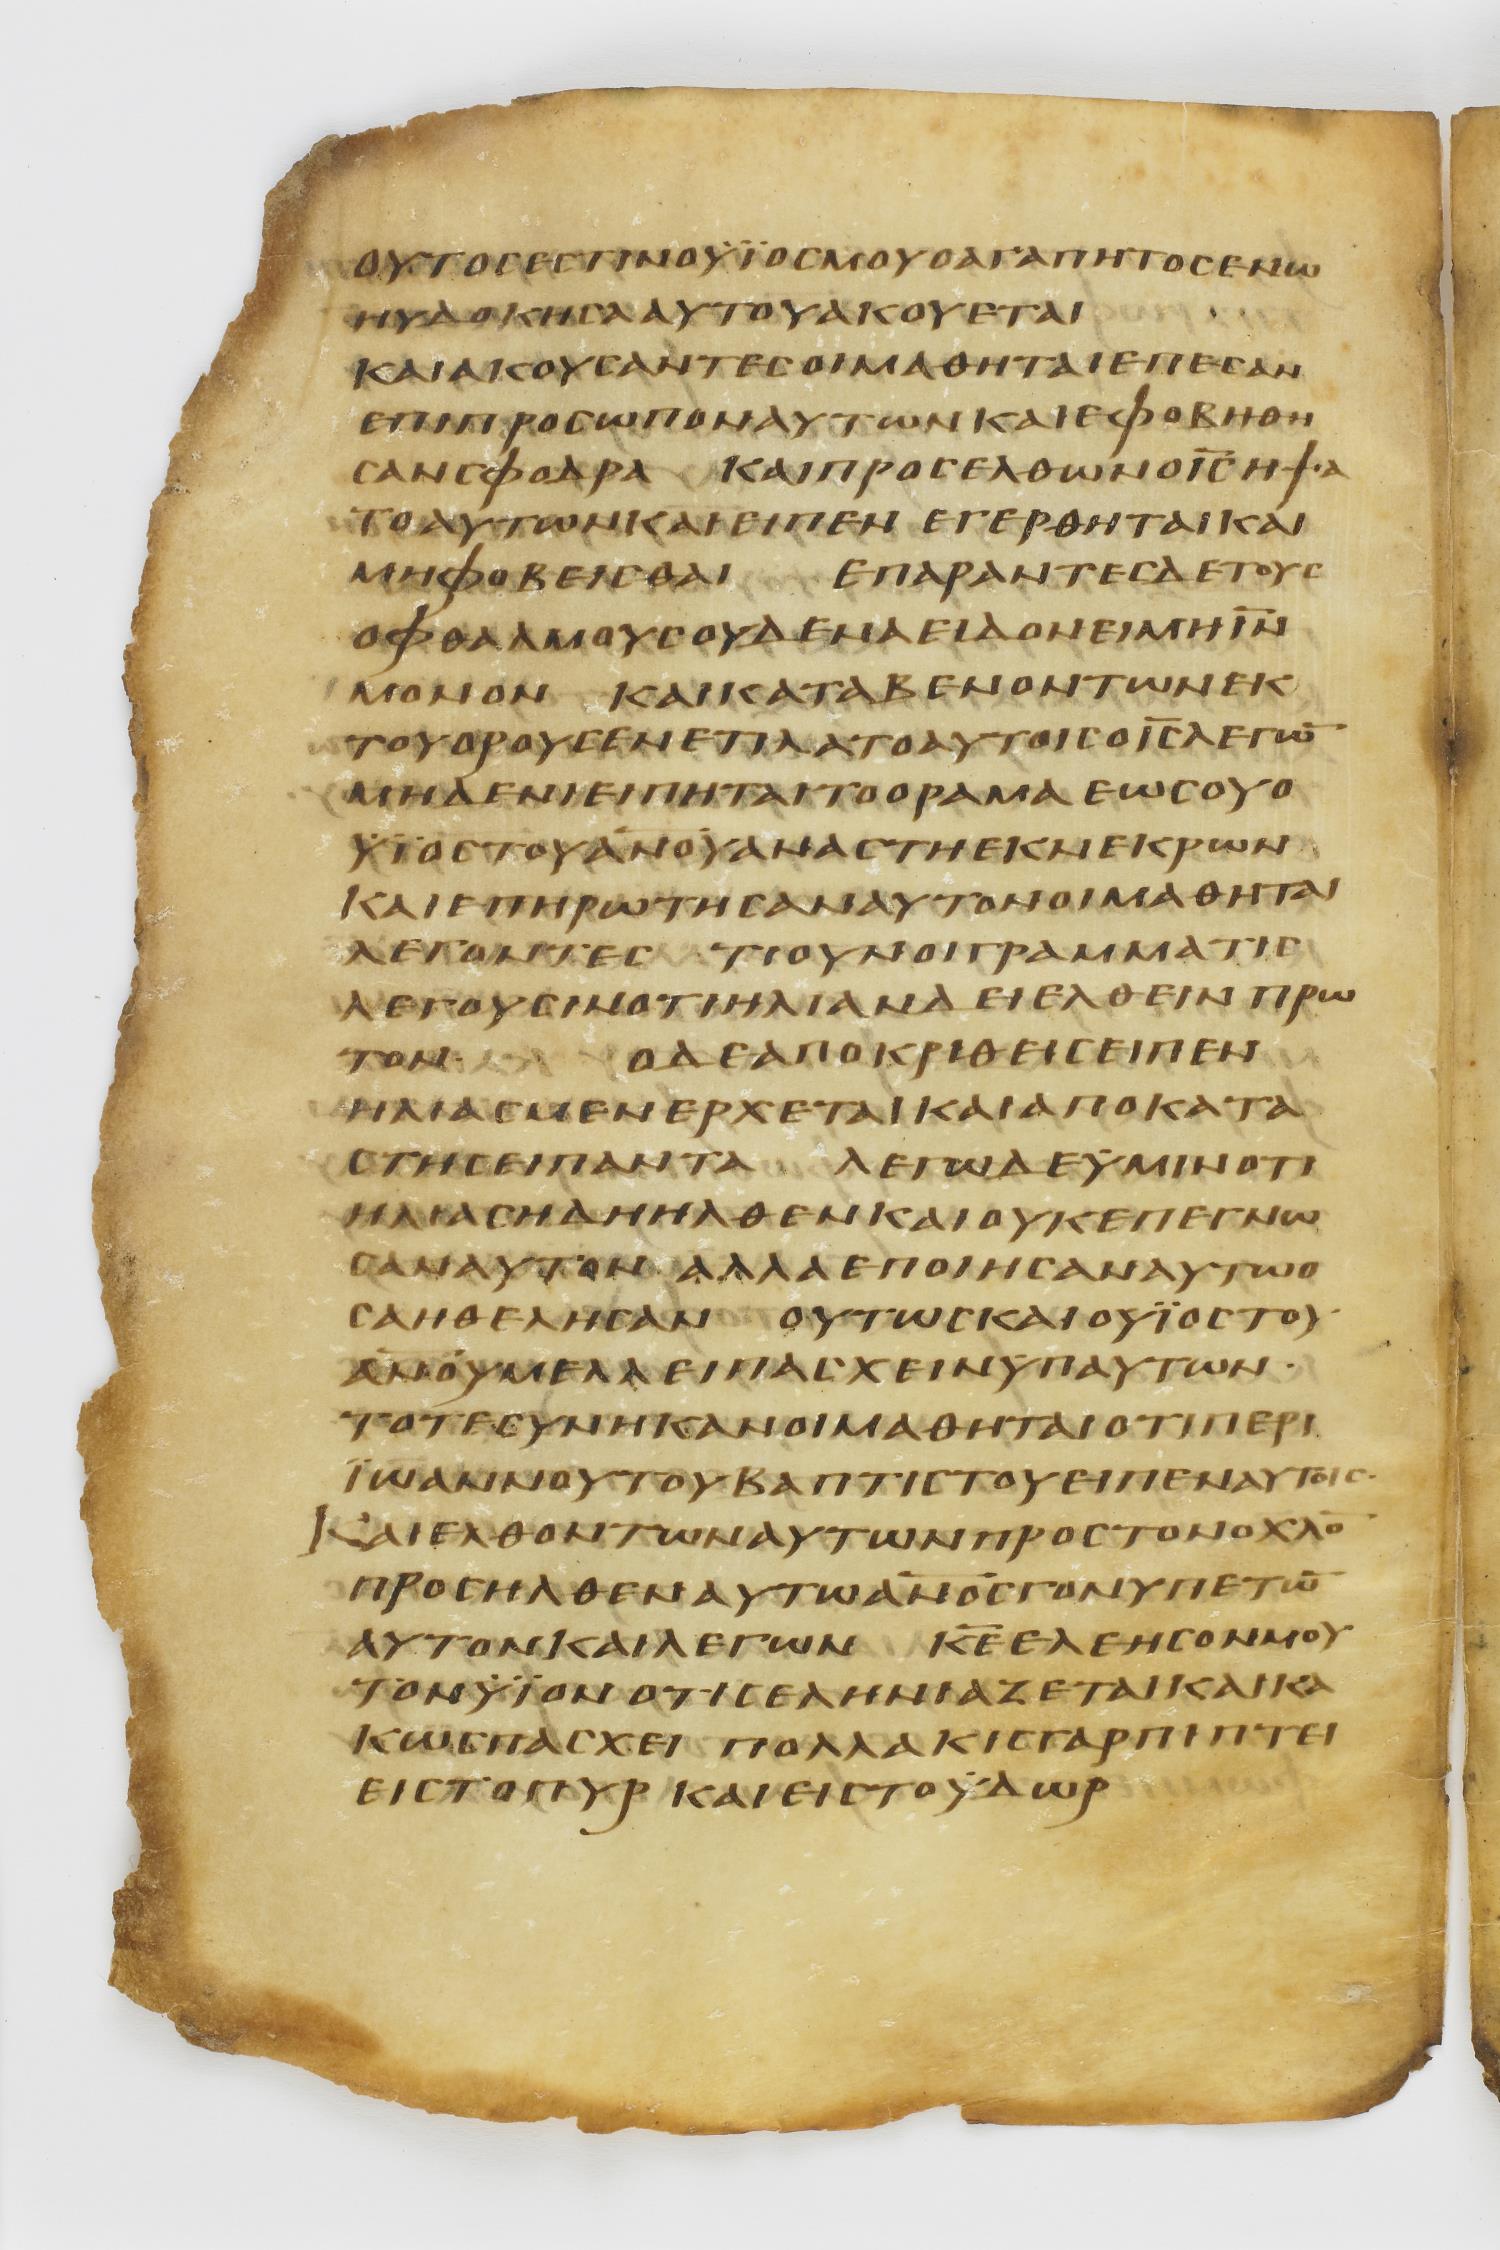 ουτοσεστινοϋϊοσμουοαγαπητοσενω
ηυδοκησααυτουακουεται
καιακουσαντεσοιμαθηταιεπεσαν
επιπροσωποναυτωνκαιεφοβηθη
σανσφοδρα καιπροσελθωνοι̅σ̅ηψα
τοαυτωνκαιειπεν εγερθηταικαι
μηφοβεισθαι επαραντεσδετουσ
οφθαλμουσουδεναειδονειμηι̅ν̅
μονον καικαταβενοντωνεκ
τουορουσενετιλατοαυτοισοι̅σ̅λεγω̅
μηδενιειπηταιτοοραμαεωσουο
ϋϊοστουα̅ν̅ο̅υ̅αναστηεκνεκρων
καιεπηρωτησαναυτονοιμαθηται
λεγοντεσ τιουνοιγραμματισ
λεγουσινοτιηλιανδειελθεινπρω
τον· οδεαποκριθεισειπεν
ηλιασμενερχεταικαιαποκατα
στησειπαντα λεγωδεϋμινοτι
ηλιασηδηηλθενκαιουκεπεγνω
σαναυτον αλλαεποιησαναυτωο
σαηθελησαν ουτωσκαιοϋϊοστου
α̅ν̅ο̅υ̅μελλειπασχεινϋπαυτων·
τοτεσυνηκανοιμαθηταιοτιπερι
ϊωαννουτουβαπτιστουειπεναυτοισ·
καιελθοντωναυτωνπροστονοχλο̅
προσηλθεναυτωα̅ν̅ο̅σ̅γονυπετω̅
αυτονκαιλεγων κ̅ε̅ελεησονμου
τονϋϊονοτισεληνιαζεταικαικα
κωσπασχει πολλακισγαρπιπτει
ειστοπυρκαιειστοϋδωρ